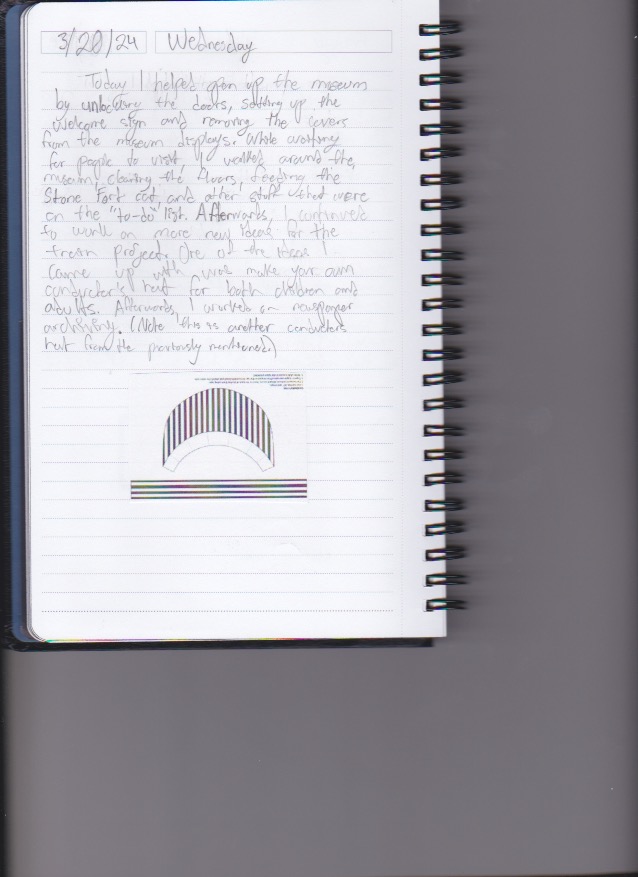 3/20/24 Wednesday
Today I helped open up the museum
by unlocking the doors, setting up the
welcome sign and removing the covers
from the museum displays. While waiting
for people to visit, I walked around the
museum, cleaning the floors, feeding the
Stone Fort cat, and other stuff that were
on the "to-do" list. Afterwards, I continued
to work on more new ideas for the
train project. One of the ideas I
came up with was make your own
conductor's hat for both children and
adults. Afterwards, I worked on newspaper
archiving. (Note this is another conductors
hat from the previously mentioned)